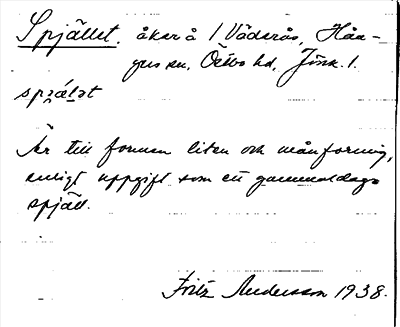 Spjället. åker å 1 Väderås, Håk-
gus sn. Östbo hd, Jönk. l.
spjälət
Är till formen liten och månformig,
enligt uppgift som ett gammaldags
spjäll.
Fritz Andersson 1938.